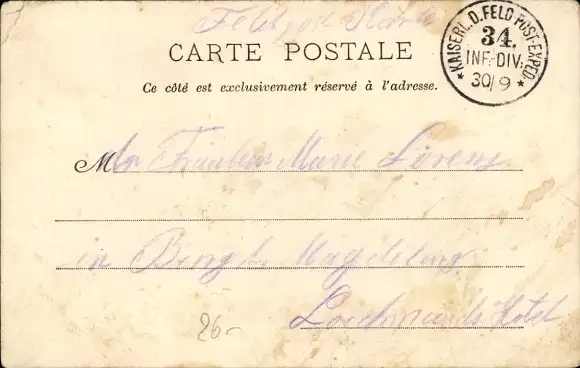 Feldpost Karte
CARTE POSTALE
KAISERL. D. FELD POST-EXPED.
34.
INF.-DIV.
30/9
Ce côté est exclusivement réservé à l'adresse.
M Fräulein Marie Lorenz
in Magdeburg
Hotel
26-